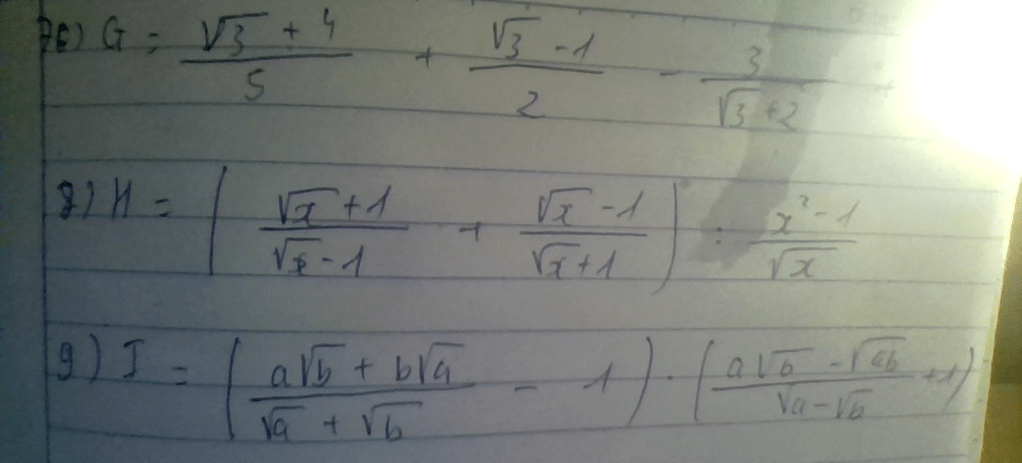 G = (√3 + 4)/5 + (√3 - 1)/2 - 3/(√3 + 2)
8) H = ((√x + 1)/(√x - 1) + (√x - 1)/(√x + 1)) : (x² - 1)/√x
9) I = ((a√b + b√a)/(√a + √b) - 1) · ((a√b - √ab)/(√a - √b) + 1)